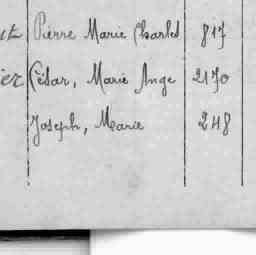 Pierre Marie Charles 817
ier César, Marie Ange 2170
Joseph, Marie 248